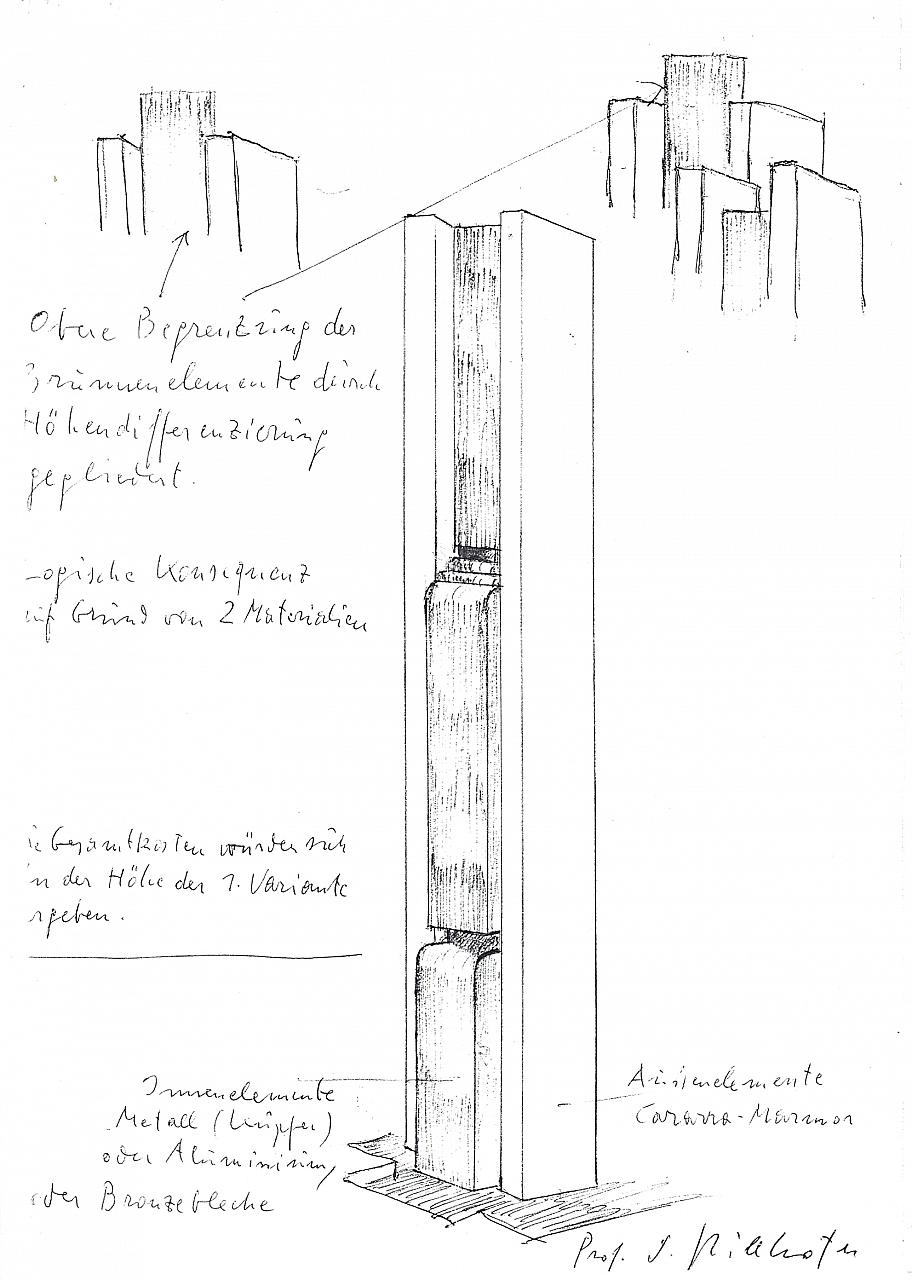 Obere Begrentzung der
Brunnenelemente durch
Höhendifferenzierung
gegliedert.
Logische Konsequenz
auf Grund von 2 Materialien
ie Gesamtkosten würden sich
in der Höhe der 1. Variante
rgeben.
Innenelemente
Metall (Kupfer)
oder Aluminium,
oder Bronzebleche
Aussenelemente
Cararra-Marmor
Prof. J.